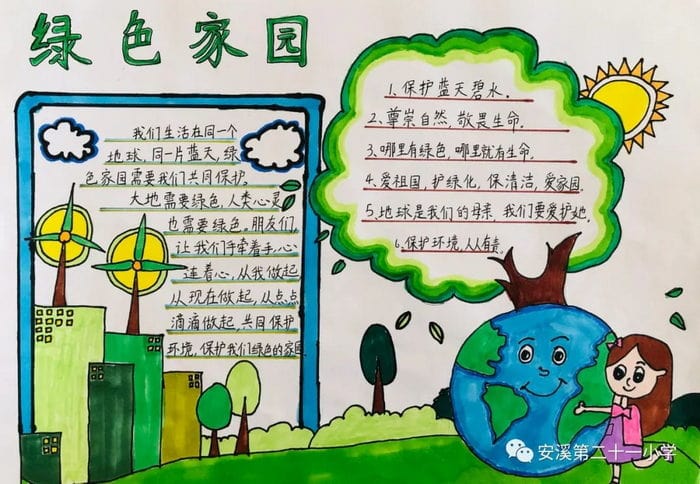 绿色家园
我们生活在同一个
地球,同一片蓝天,绿
色家园需要我们共同保护。
大地需要绿色,人类心灵
也需要绿色。朋友们,
让我们手牵着手,心
连着心,从我做起
从现在做起,从点点
滴滴做起,共同保护
环境,保护我们绿色的家园
1、保护蓝天碧水。
2、尊崇自然,敬畏生命。
3、哪里有绿色,哪里就有生命。
4、爱祖国,护绿化,保清洁,爱家园
5、地球是我们的母亲,我们要爱护她。
6、保护环境,人人有责。
安溪第二十一小学